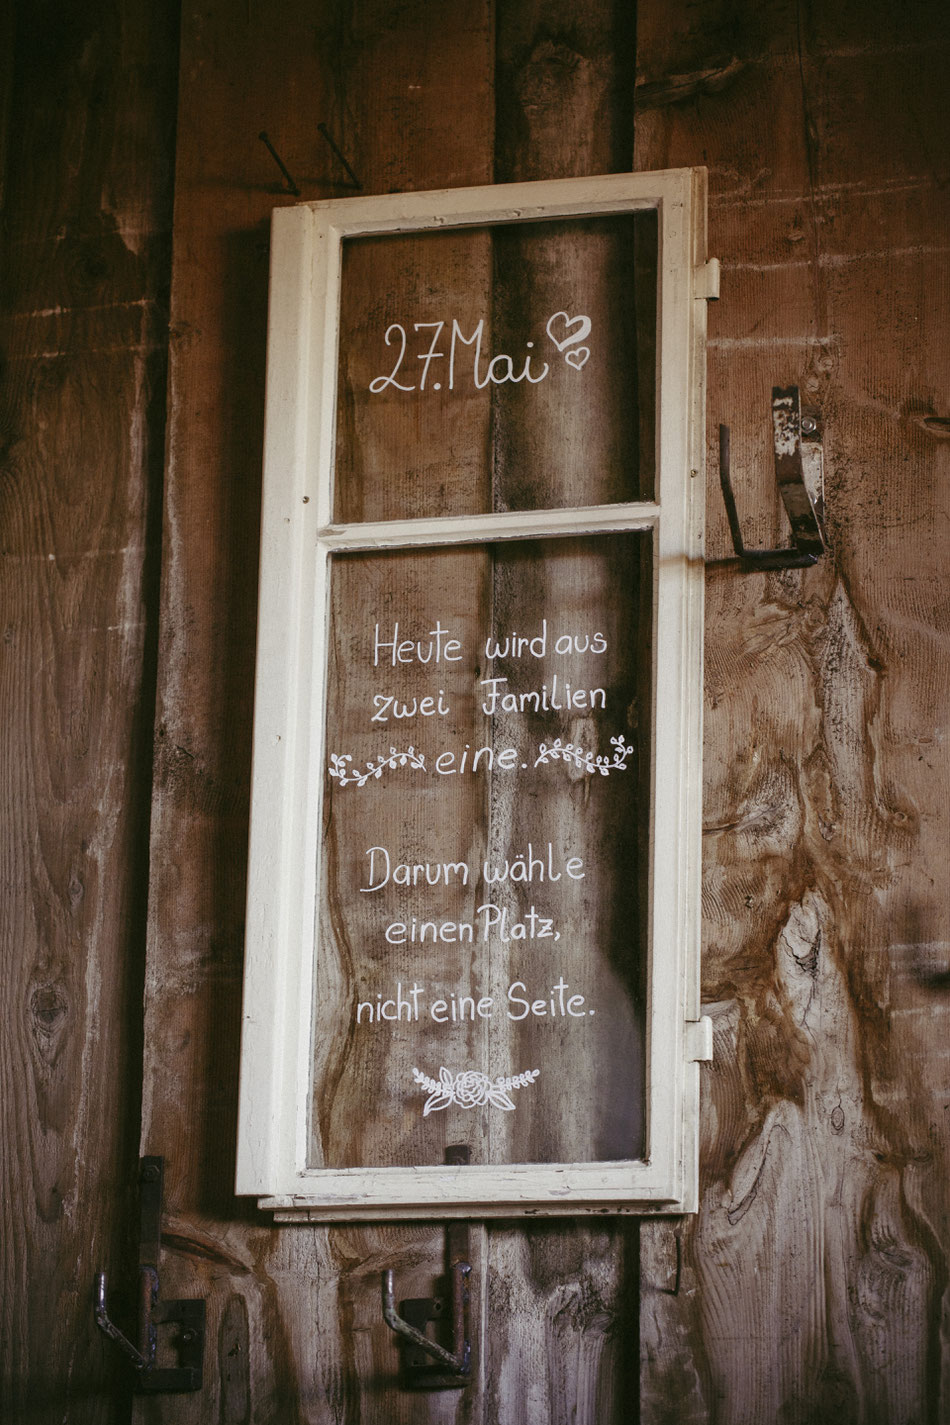 27. Mai
Heute wird aus
zwei Familien
eine.
Darum wähle
einen Platz,
nicht eine Seite.